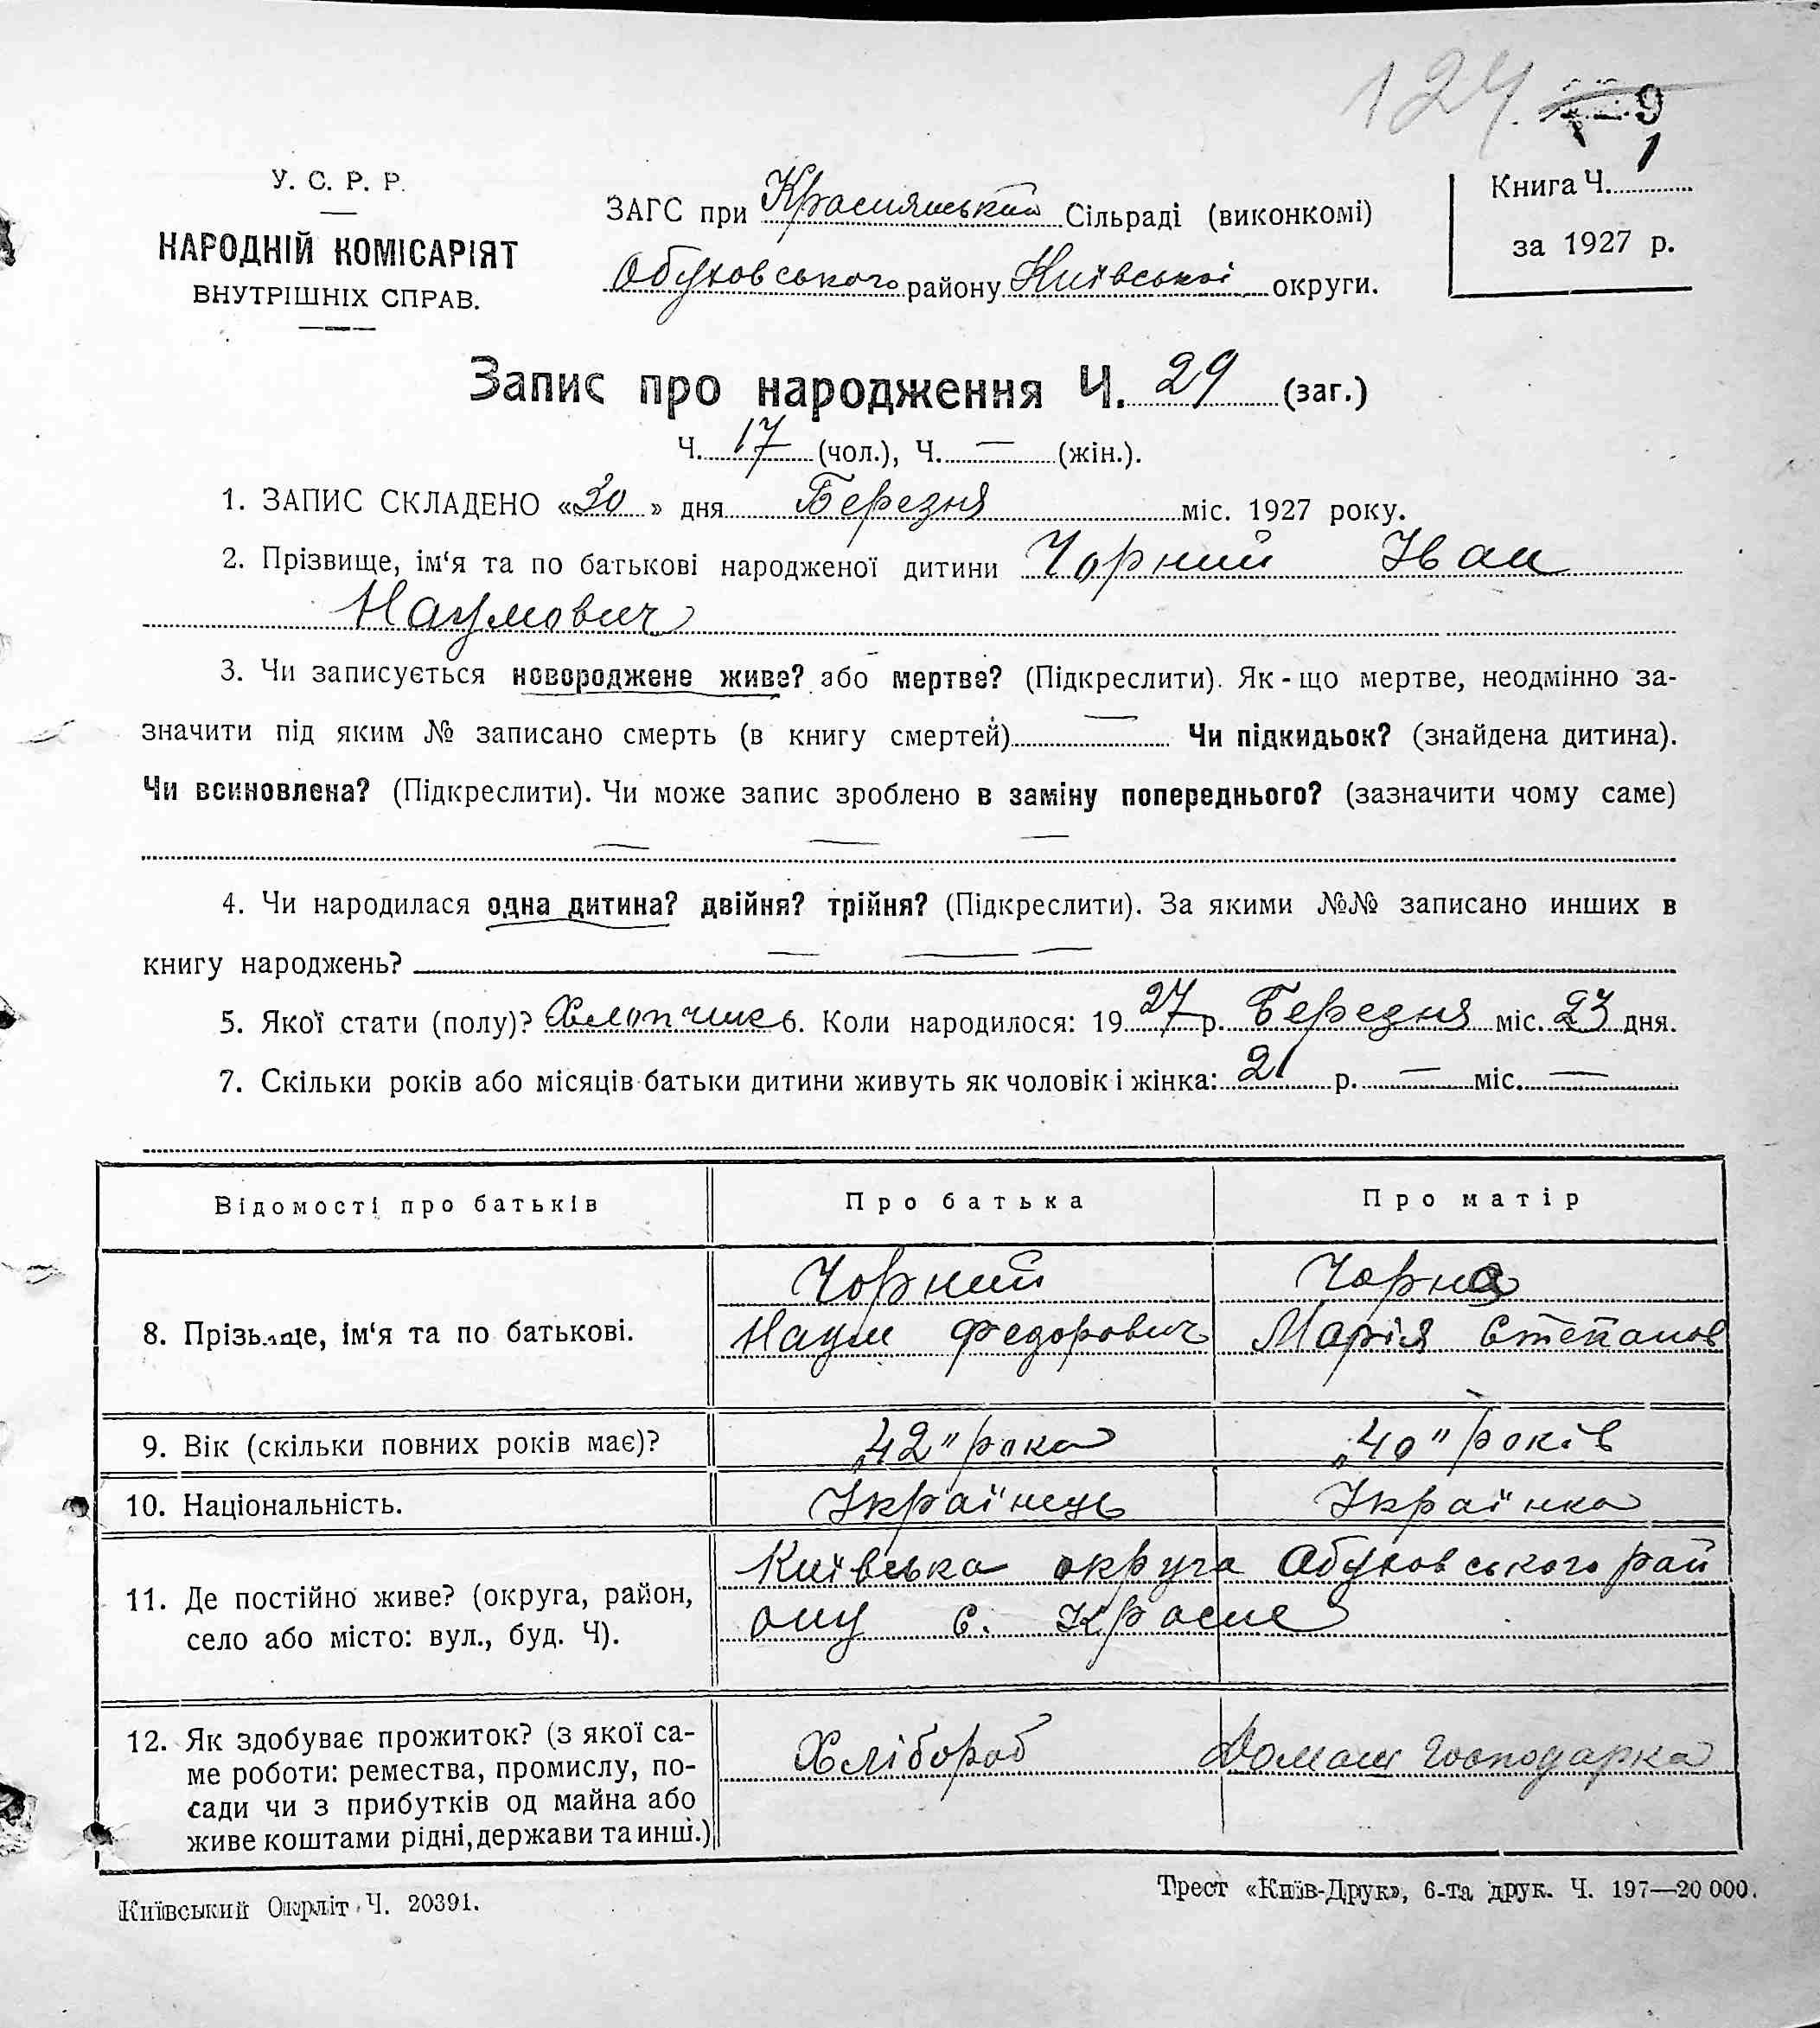 124. 9
У. С. Р. Р.
НАРОДНІЙ КОМІСАРІЯТ
ВНУТРІШНІХ СПРАВ.
ЗАГС при Краснянський Сільраді (виконкомі)
Обуховського району Київської округи.
Книга Ч. 1
за 1927 р.
Запис про народження Ч. 29 (заг.)
Ч. 17 (чол.), Ч. — (жін.).
1. ЗАПИС СКЛАДЕНО «30» дня Березня міс. 1927 року.
2. Прізвище, ім‘я та по батькові народженої дитини Чорний Іван
Наумович
3. Чи записується новороджене живе? або мертве? (Підкреслити). Як-що мертве, неодмінно за-
значити під яким № записано смерть (в книгу смертей) — Чи підкидьок? (знайдена дитина).
Чи всиновлена? (Підкреслити). Чи може запис зроблено в заміну попереднього? (зазначити чому саме)
— — —
4. Чи народилася одна дитина? двійня? трійня? (Підкреслити). За якими №№ записано инших в
книгу народжень? — — —
5. Якої стати (полу)? Хлопчик 6. Коли народилося: 1927 р. Березня міс. 23 дня.
7. Скільки років або місяців батьки дитини живуть як чоловік і жінка: 21 р. — міс. —
Відомості про батьків Про батька Про матір
8. Прізвище, ім‘я та по батькові. Чорний Наум Федорович Чорна Марія Степанов
9. Вік (скільки повних років має)? „42" рока „40" років
10. Національність. Українець Українка
11. Де постійно живе? (округа, район, Київська округа Обуховського рай
село або місто: вул., буд. Ч). ону с. Красне
12. Як здобуває прожиток? (з якої са- Хлібороб Домаш господарка
ме роботи: ремества, промислу, по-
сади чи з прибутків од майна або
живе коштами рідні, держави та инш.)
Київський Окрліт Ч. 20391.
Трест «Київ-Друк», 6-та друк. Ч. 197—20 000.